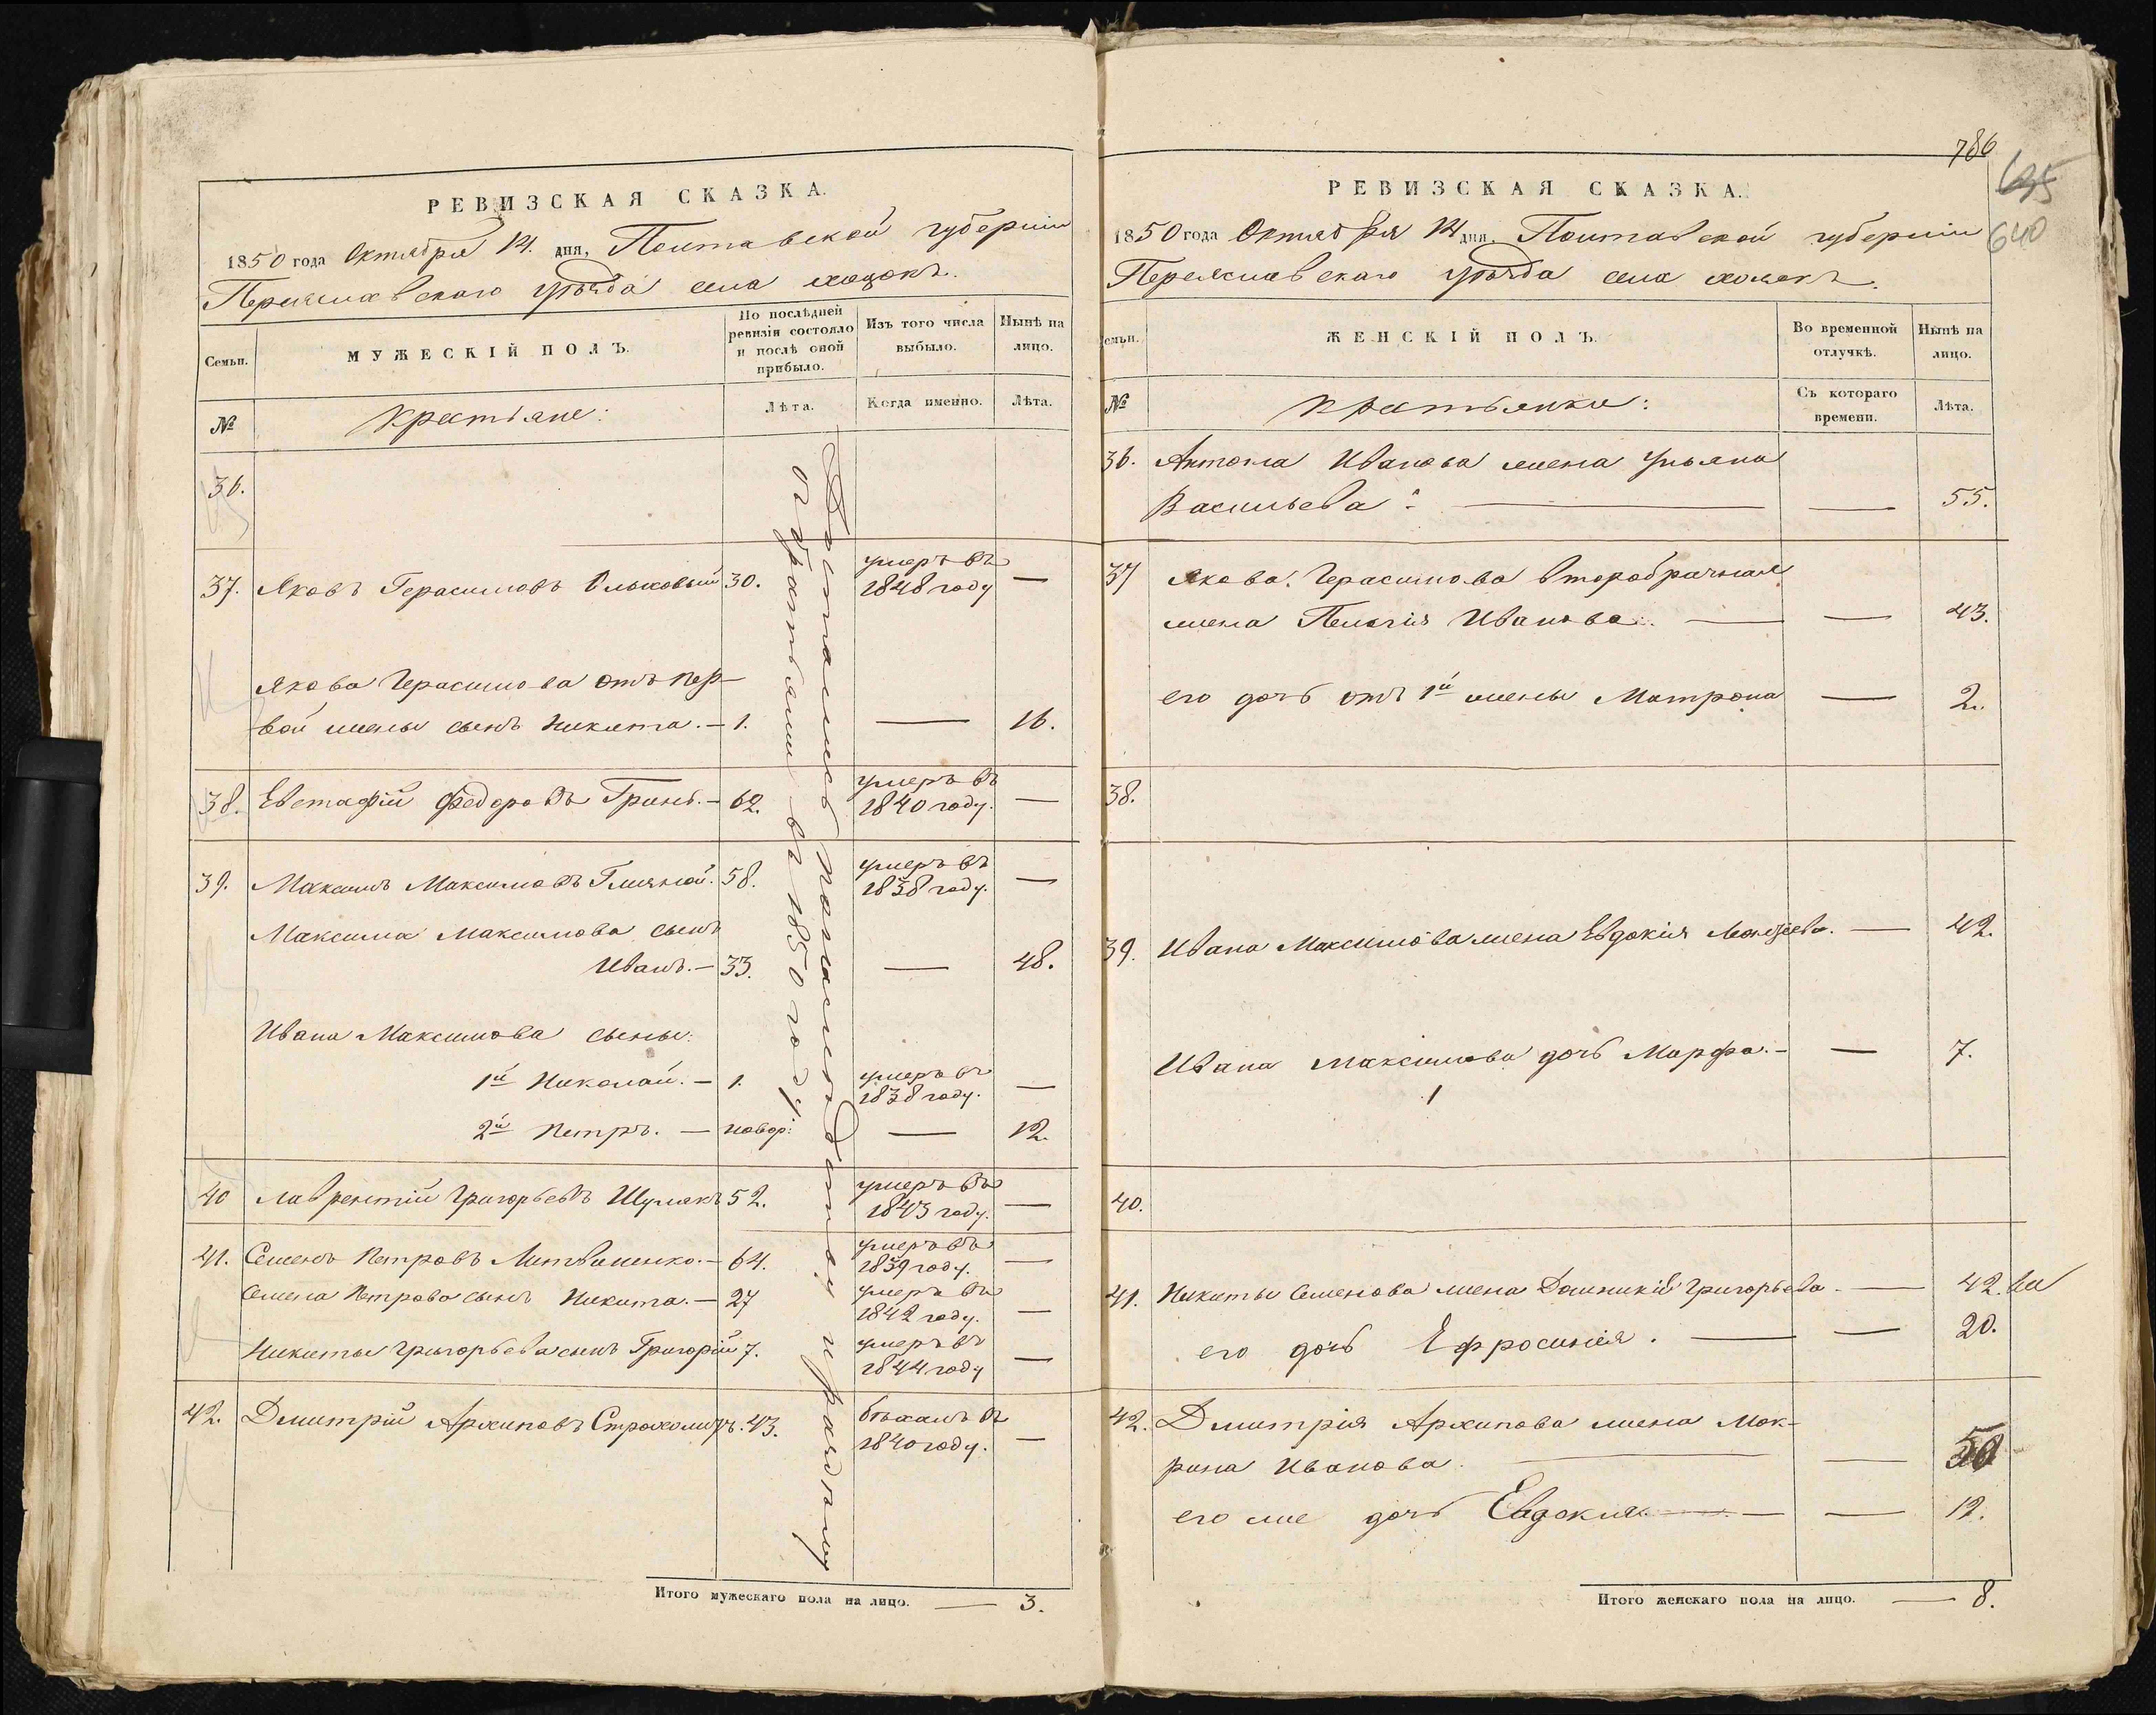 РЕВИЗСКАЯ СКАЗКА.
1850 года Октября 14. дня, Полтавской губерніи
Переяславскаго уѣзда села хоцокъ.
Семьи.
МУЖЕСКІЙ ПОЛЪ.
По послѣдней
ревизіи состояло
и послѣ оной
прибыло.
Изъ того числа
выбыло.
Нынѣ на
лицо.
№
Крестьяне:
Лѣта.
Когда именно.
Лѣта.
36.
37. Яковъ Герасимовъ 30. умеръ въ
1848 году —
Якова Герасимова отъ пер-
вой жены сынъ Никита. — 1. — 16.
38. Евстафій Федоровъ Гринь. — 62. умеръ въ
1840 году. —
39. Максимъ Максимовъ 58. умеръ въ
1838 году. —
Максима Максимова сынъ
Иванъ. — 33. — 48.
Ивана Максимова сыны:
1й Николай. — 1. умеръ въ
1838 году. —
2й Петръ. — новор: — 12.
40 Лаврентій Григорьевъ Шулякъ 52. умеръ въ
1843 году. —
41. Семенъ Петровъ Литвиненко. — 64. умеръ въ
1839 году. —
Семена Петрова сынъ Никита. — 27 умеръ въ
1842 году. —
Никиты Григорьева сынъ Григорій 7. умеръ въ
1844 году —
42. Дмитрій Архиповъ 43. бѣжалъ въ
1840 году. —
въ 1850 году.
Итого мужескаго пола на лицо. — 3.
786
635
640
РЕВИЗСКАЯ СКАЗКА.
1850 года Октября 14 дня, Полтавской губерніи
Переяславскаго уѣзда села хоцекъ.
Семьи.
ЖЕНСКІЙ ПОЛЪ.
Во временной
отлучкѣ.
Нынѣ на
лицо.
№
Крестьянки:
Съ котораго
времени.
Лѣта.
36. Антона Иванова жена Ульяна
Васильева — — 55.
37 Якова Герасимова второбрачная
жена Пелагія Иванова. — — 43.
его дочь отъ 1й жены Матрона — 2.
38.
39. Ивана Максимова жена Евдокія — 42.
Ивана Максимова дочь Марфа. — — 7.
40.
41. Никиты Семенова жена Домникія Григорьева — 42.
его дочь Ефросинія. — — 20.
42. Дмитрія Архипова жена Мок-
рина Иванова. — — 50
его же дочь Евдокія — — 12.
Итого женскаго пола на лицо. — 8.